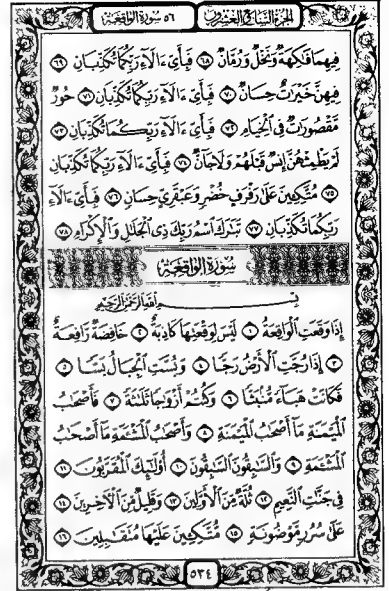 الجزء السابع والعشرون
٥٦ سورة الواقعة
فِيهِمَا فَٰكِهَةٌ وَنَخْلٌ وَرُمَّانٌ ٦٨ فَبِأَىِّ ءَالَآءِ رَبِّكُمَا تُكَذِّبَانِ ٦٩
فِيهِنَّ خَيْرَٰتٌ حِسَانٌ ٧٠ فَبِأَىِّ ءَالَآءِ رَبِّكُمَا تُكَذِّبَانِ ٧١ حُورٌ
مَّقْصُورَٰتٌ فِى ٱلْخِيَامِ ٧٢ فَبِأَىِّ ءَالَآءِ رَبِّكُمَا تُكَذِّبَانِ ٧٣
لَمْ يَطْمِثْهُنَّ إِنسٌ قَبْلَهُمْ وَلَا جَآنٌّ ٧٤ فَبِأَىِّ ءَالَآءِ رَبِّكُمَا تُكَذِّبَانِ
٧٥ مُتَّكِـِٔينَ عَلَىٰ رَفْرَفٍ خُضْرٍ وَعَبْقَرِىٍّ حِسَانٍ ٧٦ فَبِأَىِّ ءَالَآءِ
رَبِّكُمَا تُكَذِّبَانِ ٧٧ تَبَٰرَكَ ٱسْمُ رَبِّكَ ذِى ٱلْجَلَٰلِ وَٱلْإِكْرَامِ ٧٨
سورة الواقعة
بِسْمِ ٱللَّهِ ٱلرَّحْمَٰنِ ٱلرَّحِيمِ
إِذَا وَقَعَتِ ٱلْوَاقِعَةُ ١ لَيْسَ لِوَقْعَتِهَا كَاذِبَةٌ ٢ خَافِضَةٌ رَّافِعَةٌ
٣ إِذَا رُجَّتِ ٱلْأَرْضُ رَجًّا ٤ وَبُسَّتِ ٱلْجِبَالُ بَسًّا ٥
فَكَانَتْ هَبَآءً مُّنۢبَثًّا ٦ وَكُنتُمْ أَزْوَٰجًا ثَلَٰثَةً ٧ فَأَصْحَٰبُ
ٱلْمَيْمَنَةِ مَآ أَصْحَٰبُ ٱلْمَيْمَنَةِ ٨ وَأَصْحَٰبُ ٱلْمَشْـَٔمَةِ مَآ أَصْحَٰبُ
ٱلْمَشْـَٔمَةِ ٩ وَٱلسَّٰبِقُونَ ٱلسَّٰبِقُونَ ١٠ أُو۟لَٰٓئِكَ ٱلْمُقَرَّبُونَ ١١
فِى جَنَّٰتِ ٱلنَّعِيمِ ١٢ ثُلَّةٌ مِّنَ ٱلْأَوَّلِينَ ١٣ وَقَلِيلٌ مِّنَ ٱلْـَٔاخِرِينَ ١٤
عَلَىٰ سُرُرٍ مَّوْضُونَةٍ ١٥ مُّتَّكِـِٔينَ عَلَيْهَا مُتَقَٰبِلِينَ ١٦
٥٣٤